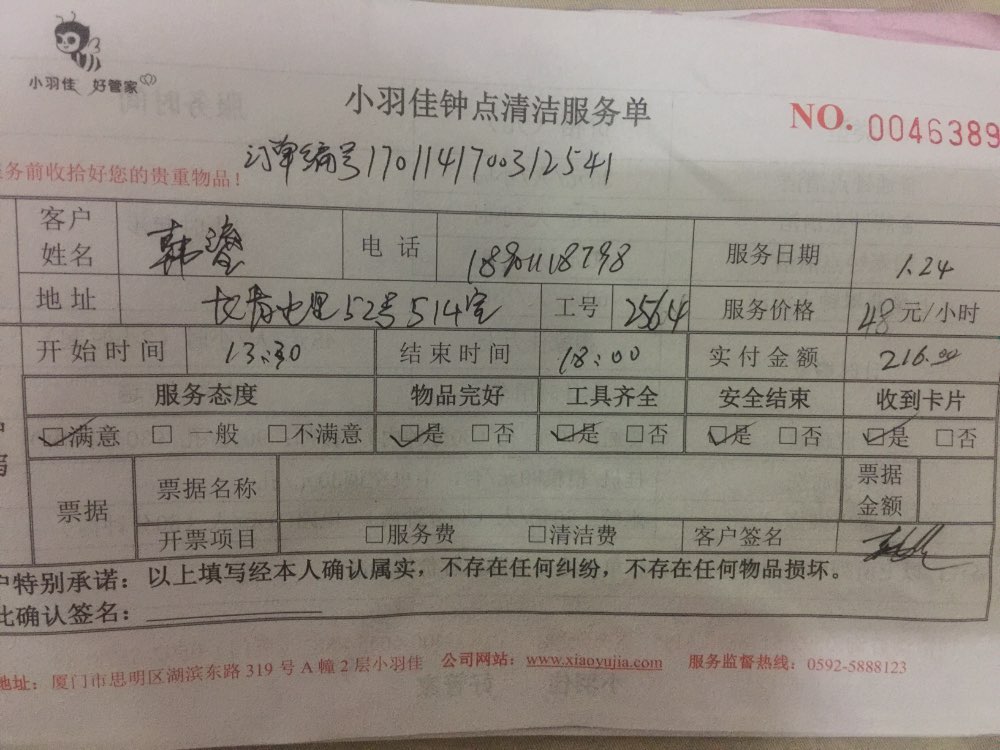 小羽佳 好管家
小羽佳钟点清洁服务单
NO. 0046389
务前收拾好您的贵重物品！
订单编号170114170031254 1
客户姓名 韩滢 电话 服务日期 1.24
地址 52号514室 工号 2564 服务价格 48元/小时
开始时间 13:30 结束时间 18:00 实付金额 216.00
服务态度 物品完好 工具齐全 安全结束 收到卡片
☑满意 □一般 □不满意 ☑是 □否 ☑是 □否 ☑是 □否 ☑是 □否
票据 票据名称 票据金额
开票项目 □服务费 □清洁费 客户签名
户特别承诺：以上填写经本人确认属实，不存在任何纠纷，不存在任何物品损坏。
此确认签名：
地址：厦门市思明区湖滨东路319号A幢2层小羽佳 公司网站：www.xiaoyujia.com 服务监督热线：0592-5888123